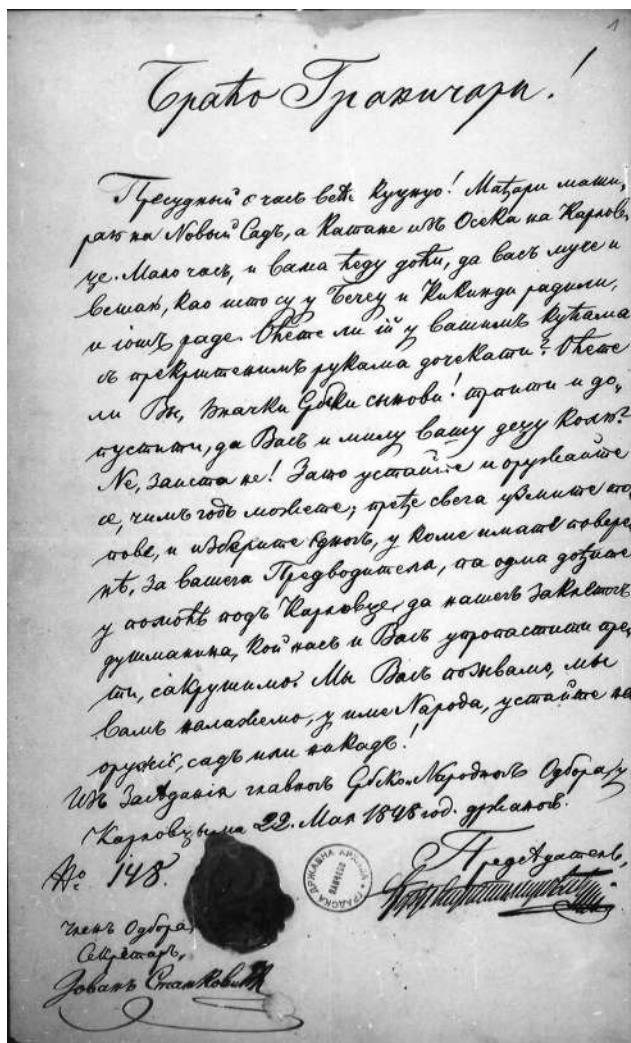 1
Браћо Граничари!
Пресудный є часъ већъ куцнуо! Мађари маши,
раю на Новый Садъ, а Катане изъ Осека на Карлов,
це. Мало часъ, и вама ћеду доћи, да васъ муче и
вешаю, као што су у Бечеу и Кикинди радили,
и іошъ раде. Оћете ли ій у вашимъ кућама
съ прекрштенимъ рукама дочекати? Оћете
ли Вы, Србски сынови! трпити и до,
пустити, да Васъ и милу вашу децу колю?
Не, заиста не! Зато устайте и оружайте
се, чимъ годъ можете; пређе свега узмите то,
пове, и изберите єдногъ, у коме имате повере,
нѣ, за вашега Предводителя, па одма дођите
у помоћь подъ Карловце, да нашегъ закletогъ
душманина, кой насъ и Васъ упропастити пре,
ти, сакрушимо. Мы Васъ позивамо, мы
вамъ налажемо, у име Народа, устайте на
оружіє, садъ или никадъ!
Изъ Засѣданія главногъ Србско-Народногъ Одбора у
Карловцыма 22. Маія 1848 год. држаногъ.
№ 148.
Предсѣдатель,
Членъ Одбора
Секретаръ,
Јованъ Станковић
ГРАДСКА ДРЖАВНА АРХИВА ПАНЧЕВО